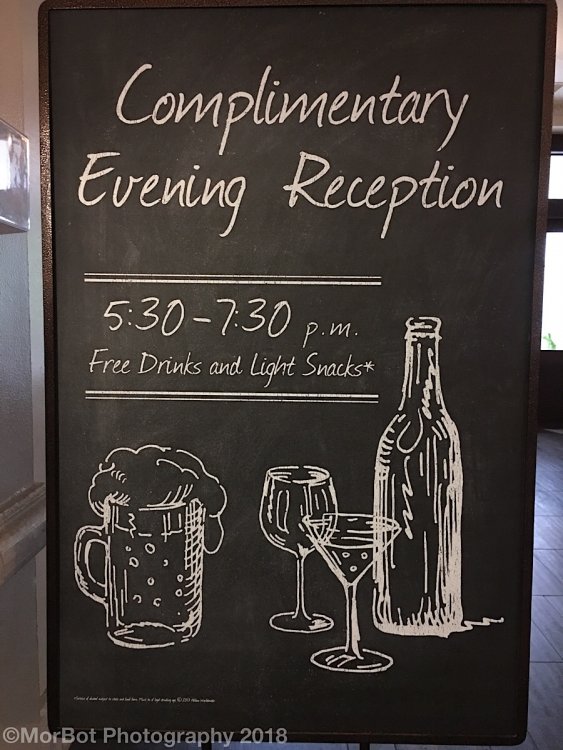 Complimentary
Evening Reception
5:30-7:30 p.m.
Free Drinks and Light Snacks*
©MorBot Photography 2018